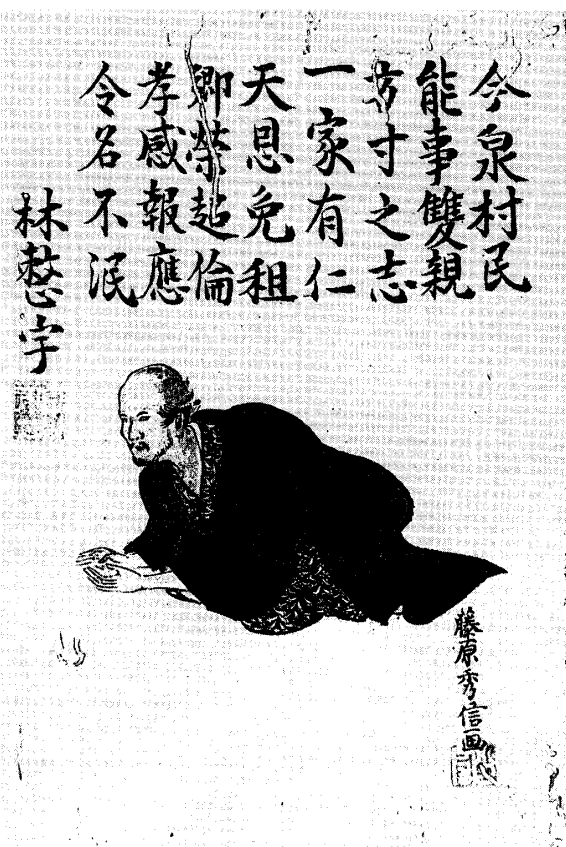 今泉村民
能事雙親
方寸之志
一家有仁
天恩免租
郷榮超倫
孝感報應
令名不泯
林整宇
藤原秀信画